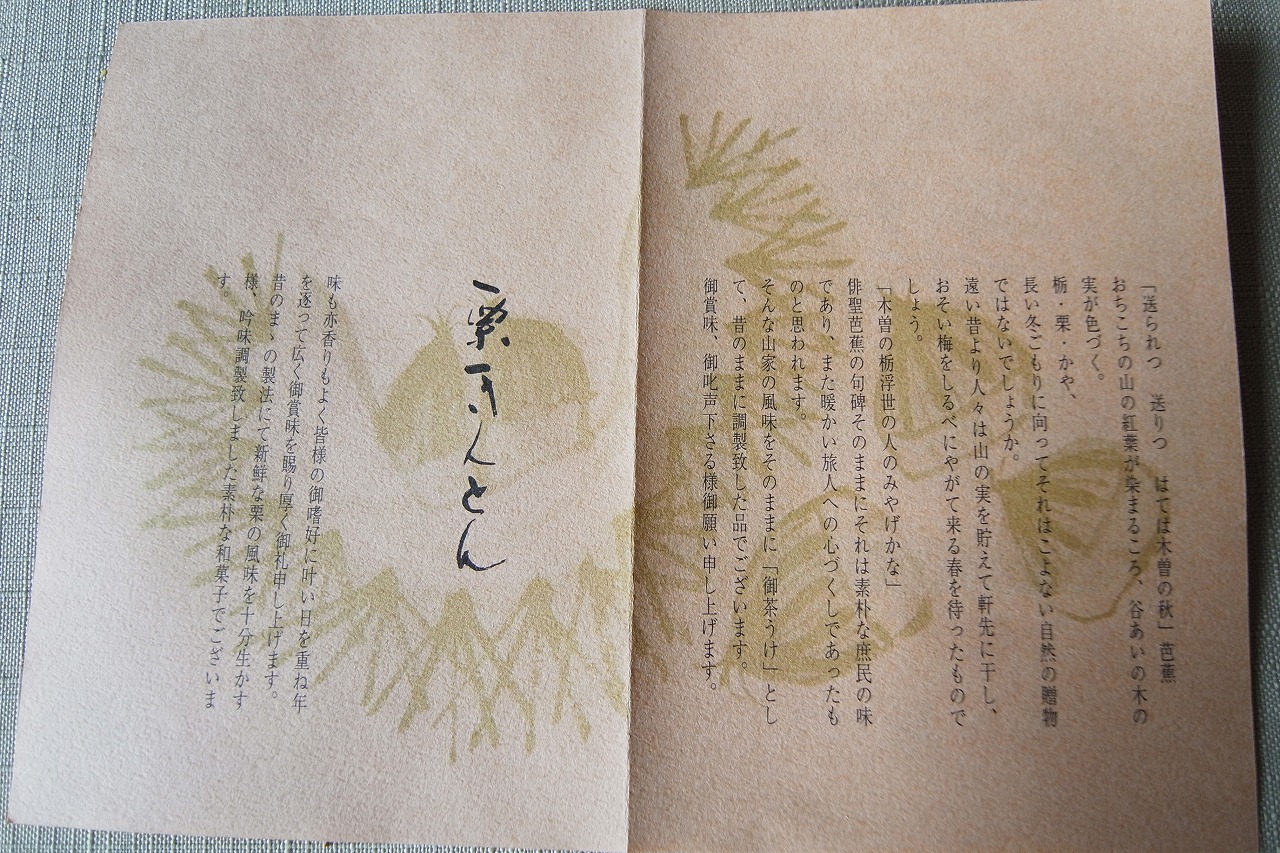 「送られつ　送りつ　はては木曽の秋」芭蕉
おちこちの山の紅葉が染まるころ、谷あいの木の
実が色づく。
栃・栗・かや、
長い冬ごもりに向ってそれはこよない自然の贈物
ではないでしょうか。
遠い昔より人々は山の実を貯えて軒先に干し、
おそい梅をしるべにやがて来る春を待ったもので
しょう。
「木曽の栃浮世の人のみやげかな」
俳聖芭蕉の句碑そのままにそれは素朴な庶民の味
であり、また暖かい旅人への心づくしであったも
のと思われます。
そんな山家の風味をそのままに「御茶うけ」とし
て、昔のままに調製致した品でございます。
御賞味、御叱声下さる様御願い申し上げます。
栗きんとん
味も亦香りもよく皆様の御嗜好に叶い日を重ね年
を逐って広く御賞味を賜り厚く御礼申し上げます。
昔のまゝの製法にて新鮮な栗の風味を十分生かす
様、吟味調製致しました素朴な和菓子でございま
す。